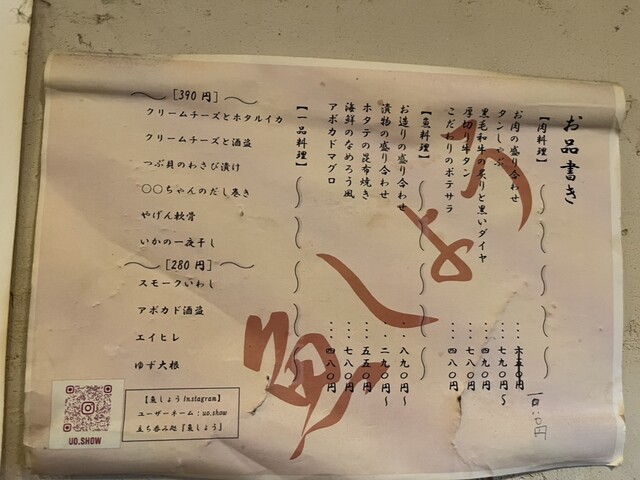 お品書き
【肉料理】
お肉の盛り合わせ ・・・六五〇円
タンしゃぶ ・・・七九〇円〜
黒毛和牛の炙りと黒いダイヤ ・・・四九〇円
厚切り牛タン ・・・七八〇円
こだわりのポテサラ ・・・四八〇円
【魚料理】
お造りの盛り合わせ ・・・八九〇〜
漬物の盛り合わせ ・・・二九〇〜
ホタテの昆布焼き ・・・五五〇円
海鮮のなめろう風 ・・・七八〇円
アボカドマグロ ・・・四八〇円
【一品料理】
〜［390円］〜
クリームチーズとホタルイカ
クリームチーズと酒盗
つぶ貝のわさび漬け
〇〇ちゃんのだし巻き
やげん軟骨
いかの一夜干し
〜［280円］〜
スモークいわし
アボカド酒盗
エイヒレ
ゆず大根
【魚しょう Instagram】
ユーザーネーム：uo.show
立ち呑み処『魚しょう』
UO.SHOW
魚しょう